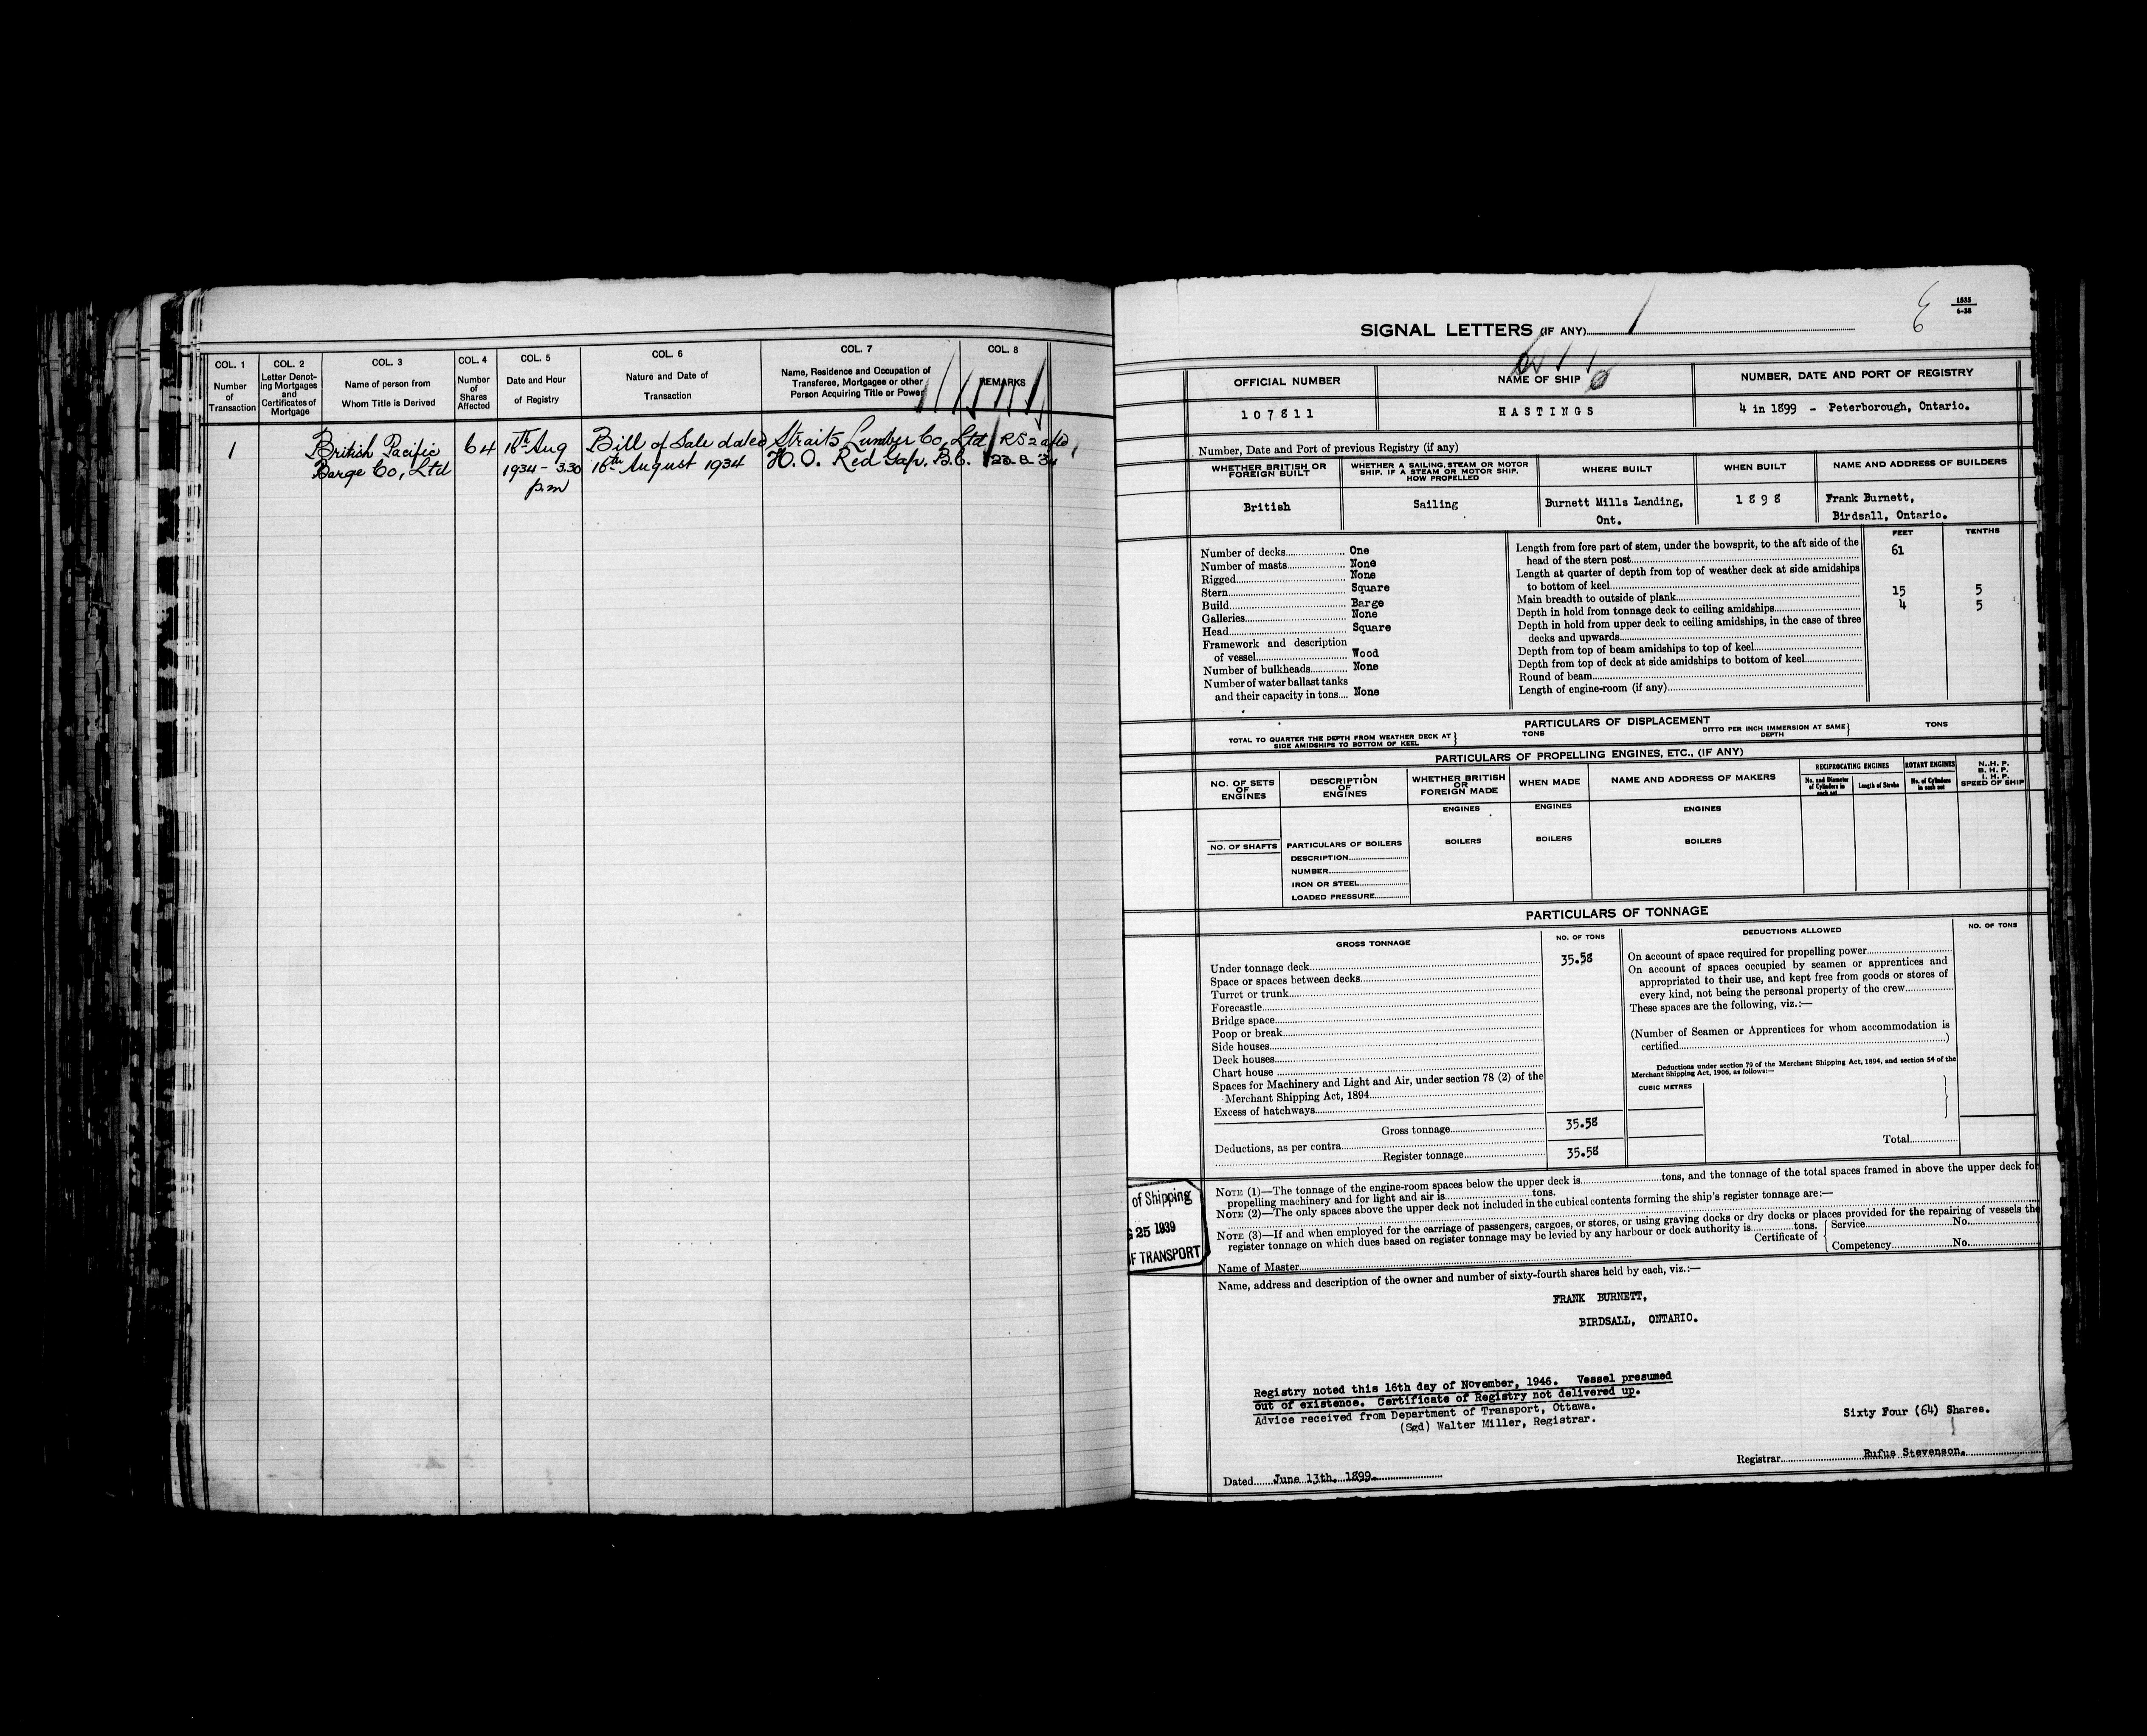 COL. 1
Number
of
Transaction
COL. 2
Letter Denot-
ing Mortgages
and
Certificates of
Mortgage
COL. 3
Name of person from
Whom Title is Derived
COL. 4
Number
of
Shares
Affected
COL. 5
Date and Hour
of Registry
COL. 6
Nature and Date of
Transaction
COL. 7
Name, Residence and Occupation of
Transferee, Mortgagee or other
Person Acquiring Title or Power
COL. 8
REMARKS
1 British Pacific 64 16th Aug Bill of Sale dated Straits Lumber Co, Ltd RS 2
Barge Co, Ltd 1934 - 3.30 16th August 1934 H.O. Red Gap. B.C. 23.8.34
p.m
1535
6-38
SIGNAL LETTERS (IF ANY)
OFFICIAL NUMBER NAME OF SHIP NUMBER, DATE AND PORT OF REGISTRY
107811 HASTINGS 4 in 1899 - Peterborough, Ontario.
Number, Date and Port of previous Registry (if any)
WHETHER BRITISH OR
FOREIGN BUILT
WHETHER A SAILING, STEAM OR MOTOR
SHIP, IF A STEAM OR MOTOR SHIP,
HOW PROPELLED
WHERE BUILT
WHEN BUILT
NAME AND ADDRESS OF BUILDERS
British Sailing Burnett Mills Landing, 1898 Frank Burnett,
Ont. Birdsall, Ontario.
FEET TENTHS
Number of decks One
Number of masts None
Rigged None
Stern Square
Build Barge
Galleries None
Head Square
Framework and description
of vessel Wood
Number of bulkheads None
Number of water ballast tanks
and their capacity in tons None
Length from fore part of stem, under the bowsprit, to the aft side of the
head of the stern post 61
Length at quarter of depth from top of weather deck at side amidships
to bottom of keel
Main breadth to outside of plank 15 5
Depth in hold from tonnage deck to ceiling amidships 4 5
Depth in hold from upper deck to ceiling amidships, in the case of three
decks and upwards
Depth from top of beam amidships to top of keel
Depth from top of deck at side amidships to bottom of keel
Round of beam
Length of engine-room (if any)
PARTICULARS OF DISPLACEMENT
TOTAL TO QUARTER THE DEPTH FROM WEATHER DECK AT
SIDE AMIDSHIPS TO BOTTOM OF KEEL
TONS
DITTO PER INCH IMMERSION AT SAME
DEPTH
TONS
PARTICULARS OF PROPELLING ENGINES, ETC., (IF ANY)
NO. OF SETS
OF
ENGINES
DESCRIPTION
OF
ENGINES
WHETHER BRITISH
OR
FOREIGN MADE
WHEN MADE
NAME AND ADDRESS OF MAKERS
RECIPROCATING ENGINES
No. and Diameter
of Cylinders in
each set
Length of Stroke
ROTARY ENGINES
No. of Cylinders
in each set
N. H. P.
B. H. P.
I. H. P.
SPEED OF SHIP
ENGINES ENGINES ENGINES
NO. OF SHAFTS PARTICULARS OF BOILERS BOILERS BOILERS BOILERS
DESCRIPTION
NUMBER
IRON OR STEEL
LOADED PRESSURE
PARTICULARS OF TONNAGE
GROSS TONNAGE NO. OF TONS DEDUCTIONS ALLOWED NO. OF TONS
Under tonnage deck 35.58
Space or spaces between decks
Turret or trunk
Forecastle
Bridge space
Poop or break
Side houses
Deck houses
Chart house
Spaces for Machinery and Light and Air, under section 78 (2) of the
Merchant Shipping Act, 1894
Excess of hatchways
Gross tonnage 35.58
Deductions, as per contra
Register tonnage 35.58
On account of space required for propelling power
On account of spaces occupied by seamen or apprentices and
appropriated to their use, and kept free from goods or stores of
every kind, not being the personal property of the crew
These spaces are the following, viz.:—
(Number of Seamen or Apprentices for whom accommodation is
certified )
Deductions under section 79 of the Merchant Shipping Act, 1894, and section 54 of the
Merchant Shipping Act, 1906, as follows:—
CUBIC METRES
Total
of Shipping
G 25 1939
OF TRANSPORT
NOTE (1)—The tonnage of the engine-room spaces below the upper deck is tons, and the tonnage of the total spaces framed in above the upper deck for
propelling machinery and for light and air is tons.
NOTE (2)—The only spaces above the upper deck not included in the cubical contents forming the ship's register tonnage are:—
NOTE (3)—If and when employed for the carriage of passengers, cargoes, or stores, or using graving docks or dry docks or places provided for the repairing of vessels the
register tonnage on which dues based on register tonnage may be levied by any harbour or dock authority is tons.
Certificate of
Service No.
Competency No.
Name of Master
Name, address and description of the owner and number of sixty-fourth shares held by each, viz.:—
FRANK BURNETT,
BIRDSALL, ONTARIO.
Registry noted this 16th day of November, 1946. Vessel presumed
out of existence. Certificate of Registry not delivered up.
Advice received from Department of Transport, Ottawa.
(Sgd) Walter Miller, Registrar.
Sixty Four (64) Shares.
Registrar Rufus Stevenson.
Dated June 13th, 1899.